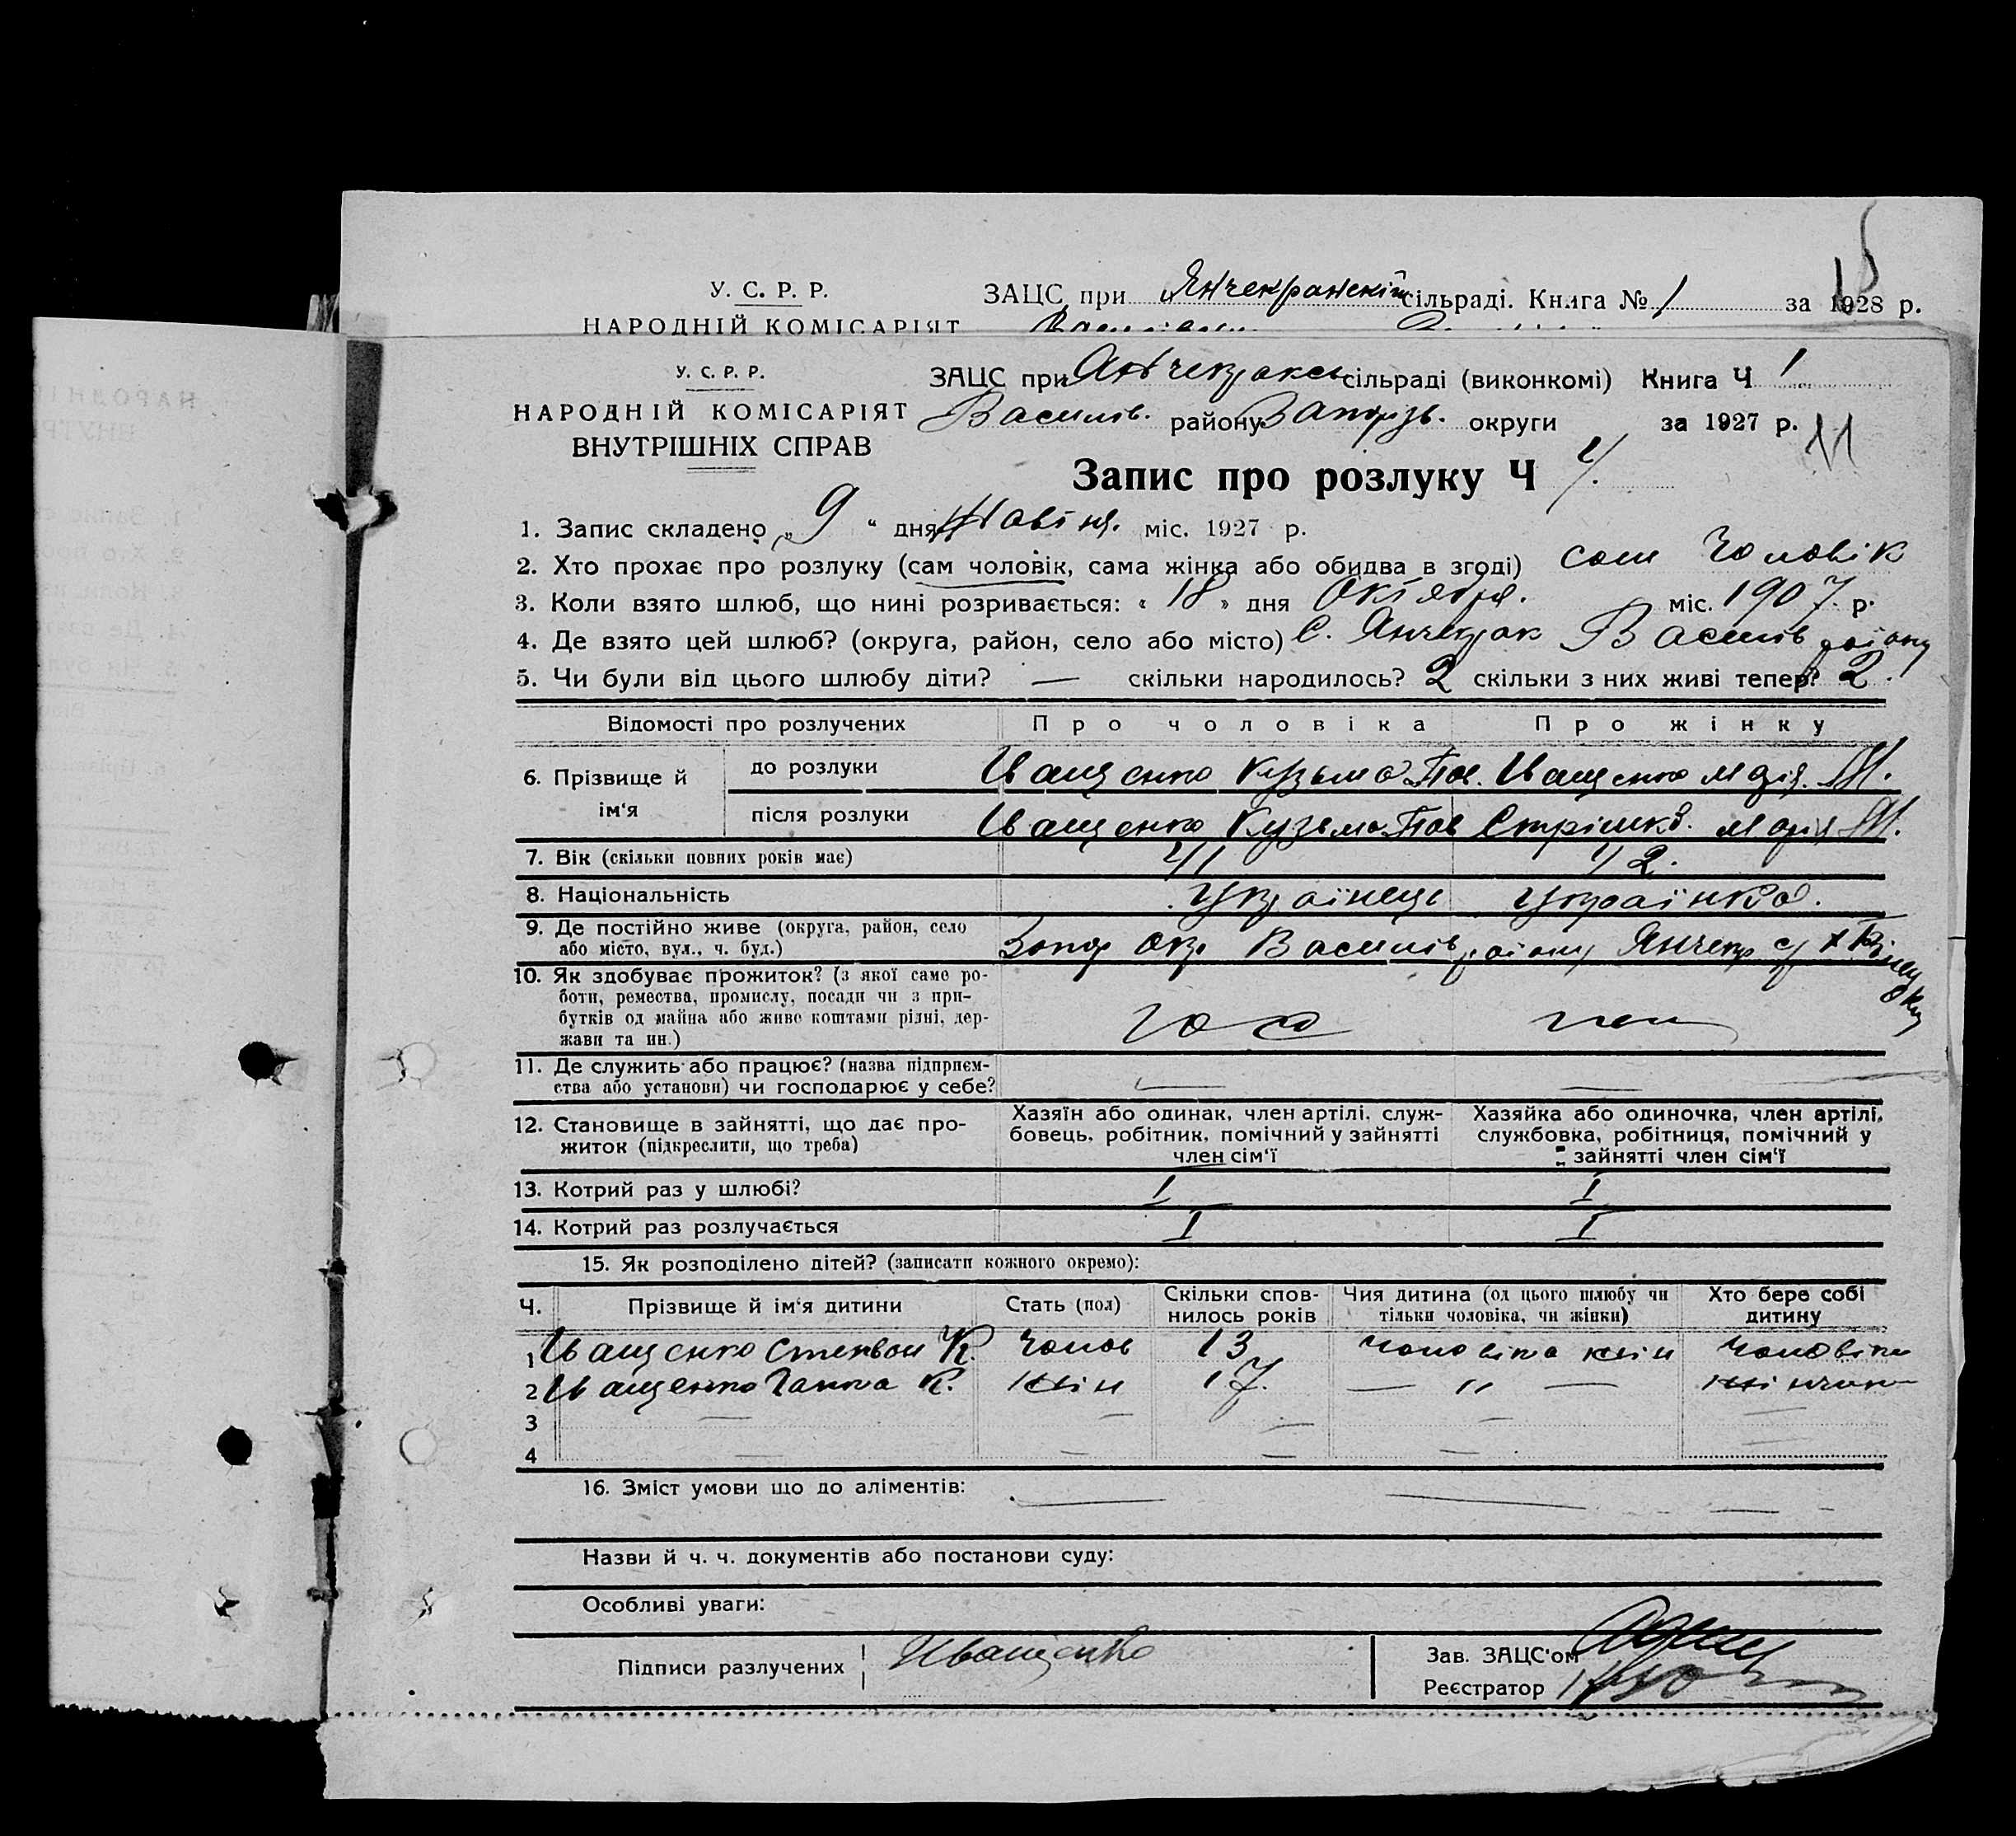 У. С. Р. Р.
ЗАЦС при Янчекранскій сільраді. Книга № 1 за 1928 р.
15
НАРОДНІЙ КОМІСАРІЯТ
У. С. Р. Р.
НАРОДНІЙ КОМІСАРІЯТ
ВНУТРІШНІХ СПРАВ
ЗАЦС при Янчекракс сільраді (виконкомі) Книга Ч 1
Василів. району Запорізв. округи за 1927 р.
11
Запис про розлуку Ч 4.
1. Запис складено „ 9 “ дня Жовтня. міс. 1927 р.
2. Хто прохає про розлуку (сам чоловік, сама жінка або обидва в згоді) сам чоловік
3. Коли взято шлюб, що нині розривається: “ 18 ” дня Октября. міс. 1907 р.
4. Де взято цей шлюб? (округа, район, село або місто) С. Янчекрак Василів району
5. Чи були від цього шлюбу діти? — скільки народилось? 2 скільки з них живі тепер? 2.
Відомості про розлучених Про чоловіка Про жінку
6. Прізвище й ім‘я
до розлуки Иващенко Кузьма Пав. Иващенко Марія. М.
після розлуки Иващенко Кузьма Пав Стрішко. Марія М.
7. Вік (скільки повних років має) 41 42.
8. Національність Українець Українка.
9. Де постійно живе (округа, район, село
або місто, вул., ч. буд.) Запор окр Василів району Янчекр с/
10. Як здобуває прожиток? (з якої саме ро-
боти, ремества, промислу, посади чи з при-
бутків од майна або живе коштами рідні, дер-
жави та ин.)
11. Де служить або працює? (назва підприєм-
ства або установи) чи господарює у себе? — —
12. Становище в зайнятті, що дає про-
житок (підкреслити, що треба)
Хазяїн або одинак, член артілі, служ-
бовець, робітник, помічний у зайнятті
член сім‘ї
Хазяйка або одиночка, член артілі,
службовка, робітниця, помічний у
зайнятті член сім‘ї
13. Котрий раз у шлюбі? I I
14. Котрий раз розлучається I I
15. Як розподілено дітей? (записати кожного окремо):
Ч. Прізвище й ім‘я дитини Стать (пол) Скільки спов-
нилось років Чия дитина (од цього шлюбу чи
тільки чоловіка, чи жінки) Хто бере собі
дитину
1 Иващенко Степвон К. Чолов 13 Чоловіка жін Чоловіка
2 Иващенко Ганна К. Жін 17. — „ — жіночка
3 — — — — —
4 — — — — —
16. Зміст умови що до аліментів: — — —
Назви й ч. ч. документів або постанови суду:
Особливі уваги:
Підписи разлучених Иващенко
Зав. ЗАЦС'ом
Реєстратор